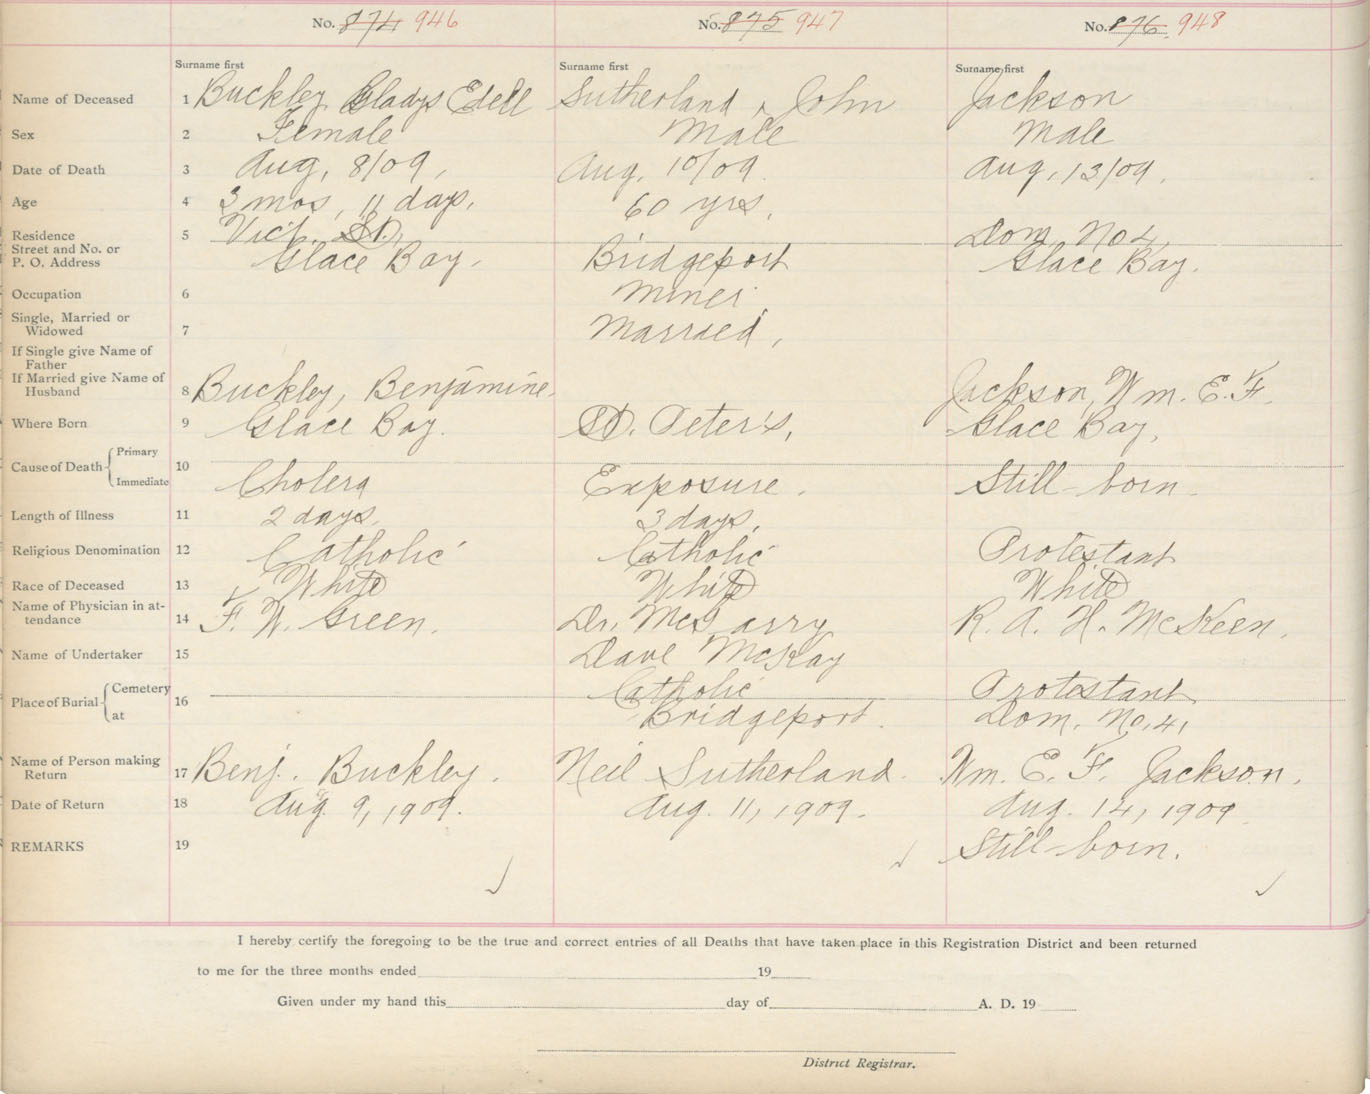 No. 874 946 No. 875 947 No. 876 948
Surname first Surname first Surname first
Name of Deceased 1 Buckley Gladys Edell Sutherland, John Jackson
Sex 2 Female Male Male
Date of Death 3 Aug, 8/09, Aug, 10/09. Aug, 13/09.
Age 4 3 mos, 11 days, 60 yrs,
Residence 5 Vict. St., Dom. No 4,
Street and No. or
P. O. Address Glace Bay. Bridgeport Glace Bay.
Occupation 6 Miner
Single, Married or
Widowed 7 Married,
If Single give Name of
Father
If Married give Name of
Husband 8 Buckley, Benjamine. Jackson, Wm. E. F.
Where Born 9 Glace Bay. St. Peter's, Glace Bay,
Cause of Death Primary 10
Immediate Cholera Exposure. Still-born.
Length of Illness 11 2 days. 3 days.
Religious Denomination 12 Catholic Catholic Protestant
Race of Deceased 13 White White White
Name of Physician in at-
tendance 14 F. W. Green. Dr. McGarry R. A. H. McKeen.
Name of Undertaker 15 Dave McKay
Place of Burial Cemetery 16 Catholic Protestant
at Bridgeport. Dom. No. 4,
Name of Person making
Return 17 Benj. Buckley. Neil Sutherland. Wm. E. F. Jackson.
Date of Return 18 Aug. 9, 1909. Aug. 11, 1909. Aug. 14, 1909.
REMARKS 19 Still-born.
I hereby certify the foregoing to be the true and correct entries of all Deaths that have taken place in this Registration District and been returned
to me for the three months ended 19
Given under my hand this day of A. D. 19
District Registrar.